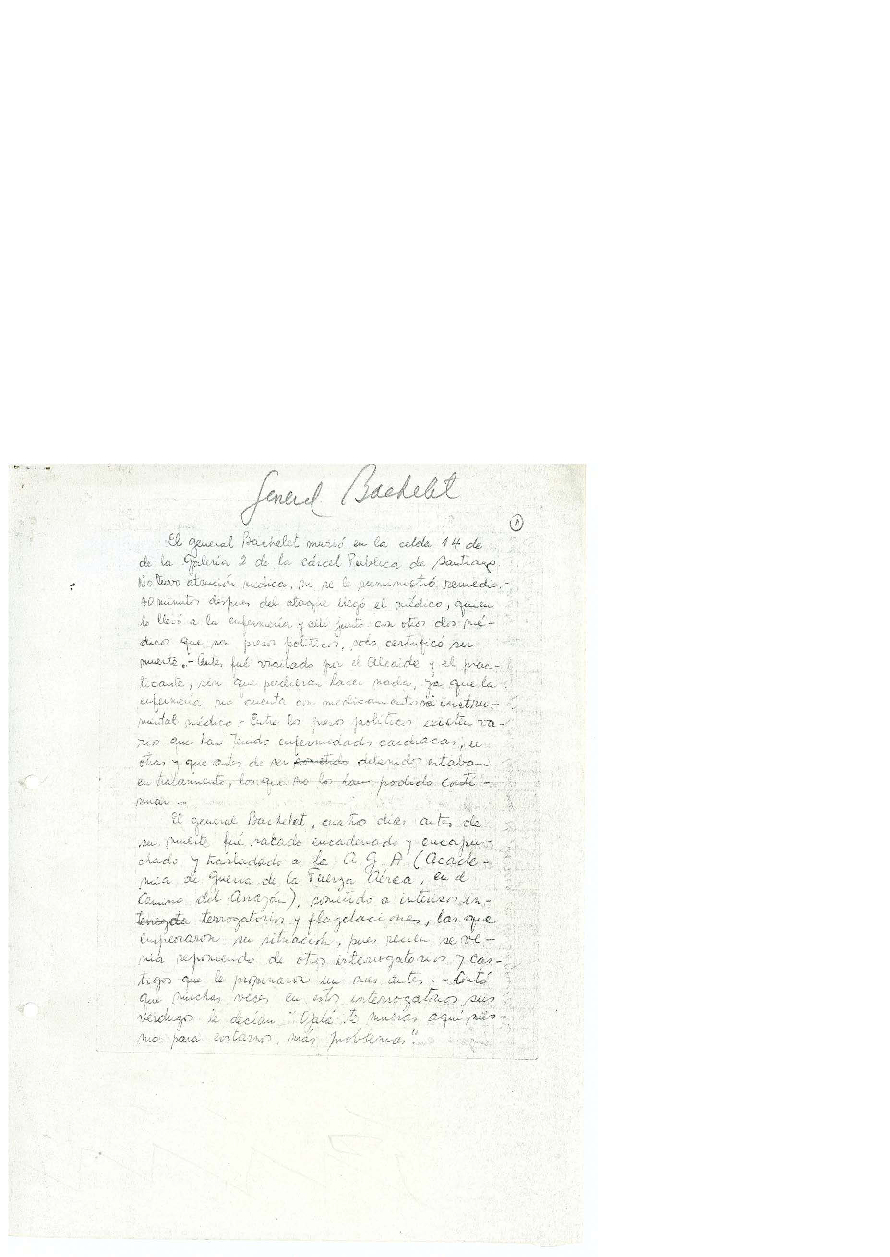 General Bachelet
1
El general Bachelet murió en la celda 14 de
de la Galería 2 de la cárcel Pública de Santiago.
No tuvo atención médica, ni se le suministró remedio.-
40 minutos después del ataque llegó el médico, quien
lo llevó a la enfermería y allí junto con otros dos mé-
dicos que son presos políticos, sólo certificó su
muerte.- Antes fué visitado por el Alcaide y el prac-
ticante, sin que pudieran hacer nada, ya que la
enfermería no cuenta con medicamentos ni instru-
mental médico.- Entre los presos políticos existen va-
rios que han tenido enfermedades cardíacas, u
otras y que antes de ser sometidos detenidos estaban
en tratamiento, los que no los han podido conti-
nuar.-
El general Bachelet, cuatro días antes de
su muerte fué sacado encadenado y encapu-
chado y trasladado a la A G A (Acade-
mia de Guerra de la Fuerza Aérea, en el
Camino del Arrayán), sometido a intensos in-
terrogatorios y flagelaciones, las que
empeoraron su situación, pues recien se ve-
nía reponiendo de otros interrogatorios y cas-
tigos que le propinaron un mes antes.- Contó
que muchas veces en estos interrogatorios sus
verdugos le decían "Ojalá te mueras aquí mis-
mo para evitarnos más problemas".